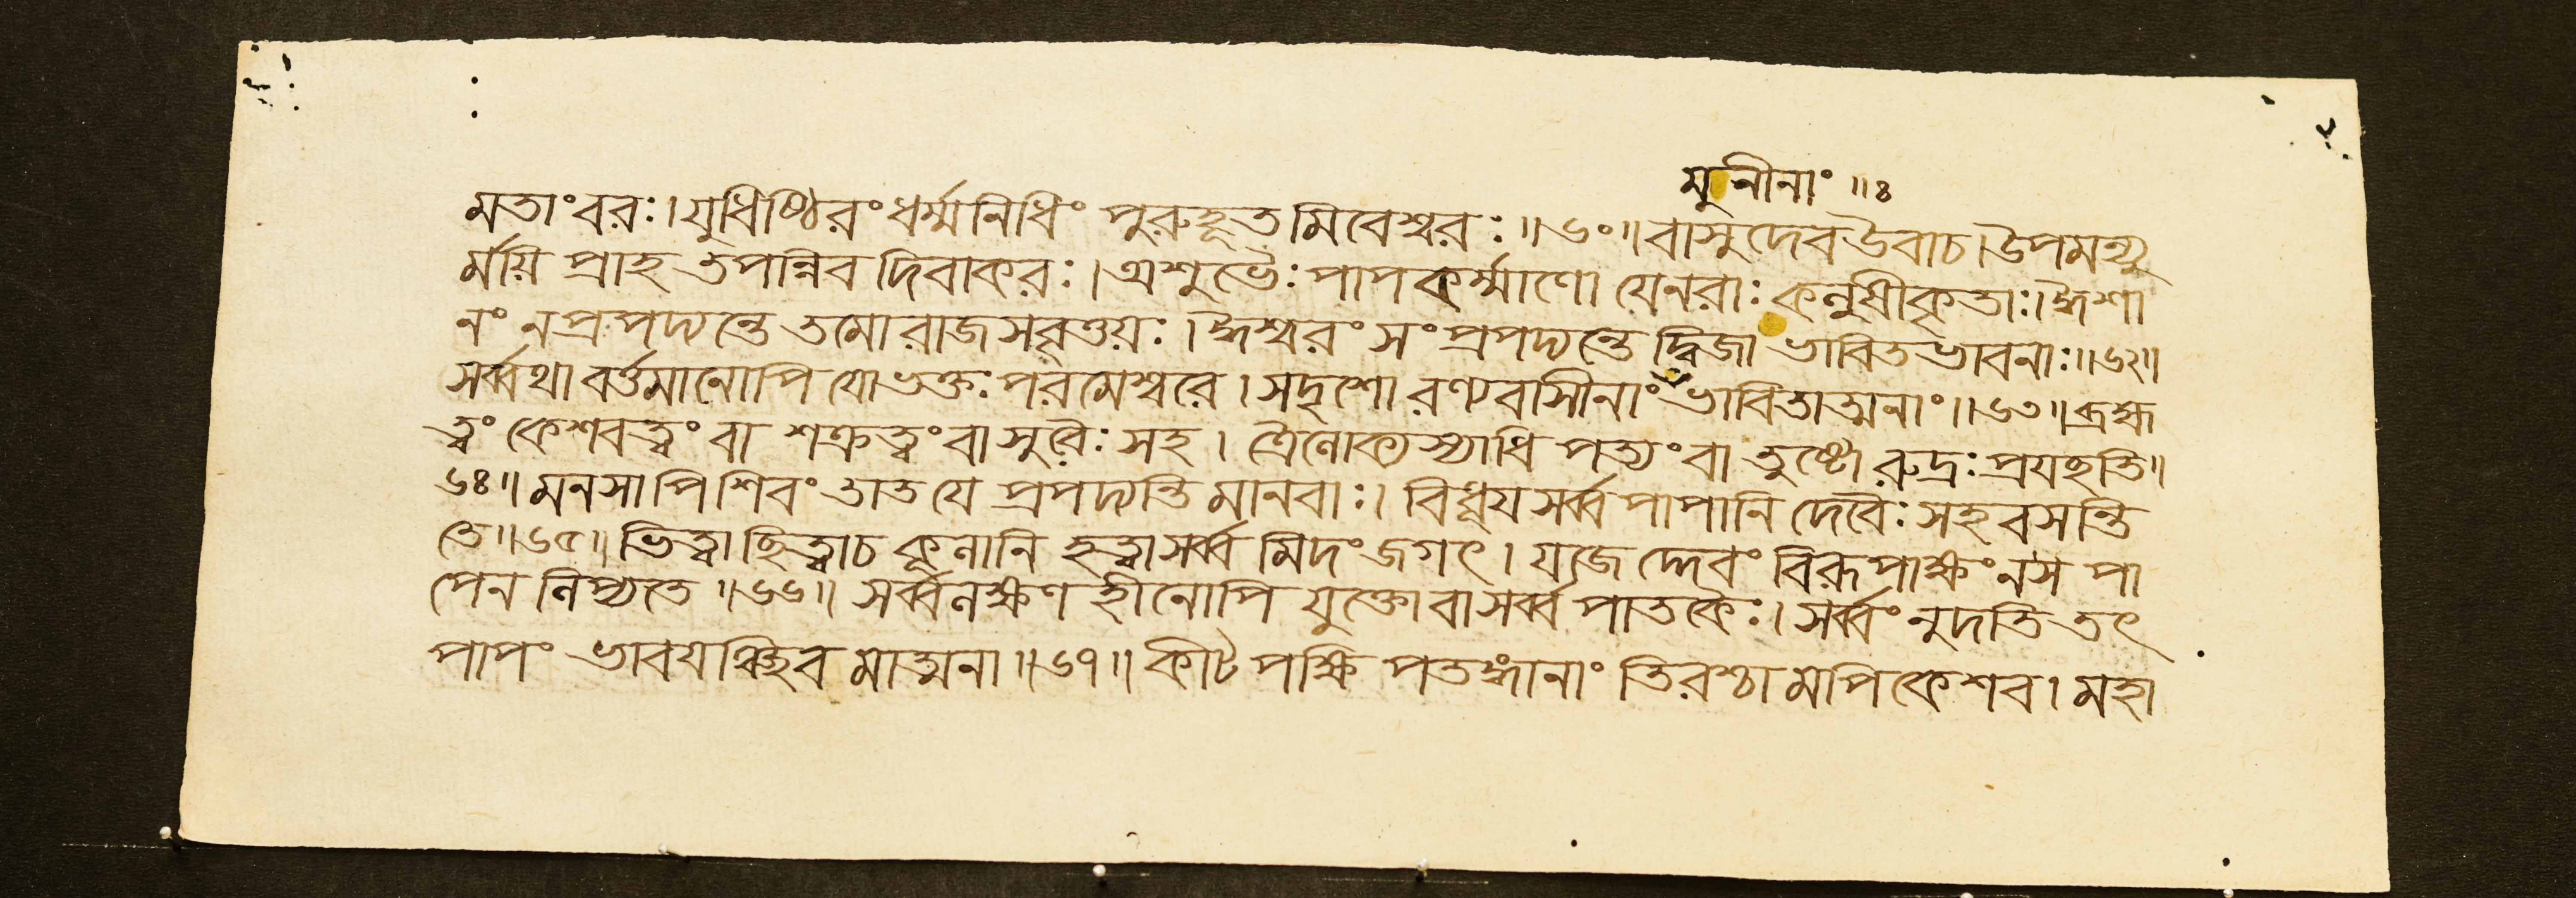 মুনীনাং ॥৪
মতাংবরঃ।যুধিষ্ঠিরং ধর্ম্মনিধিং পুরুহূতমিবেশ্বরঃ॥৬০॥বাসুদেবউবাচ।উপমন্যু
র্ময়ি প্রাহ তপন্নিব দিবাকরঃ।অশুভৈঃপাপকর্ম্মাণো যেনরাঃকলুষীকৃতাঃ।ঈশা
নং নপ্রপদ্যন্তে তমোরাজসবৃত্তয়ঃ।ঈশ্বরং সংপ্রপদ্যন্তে দ্বিজা ভাবিতভাবনাঃ॥৬২॥
সর্ব্বথাবর্ত্তমানোপি যোভক্তঃপরমেশ্বরে।সদৃশোরণ্যবাসীনাং ভাবিতাত্মনাং॥৬৩॥ব্রহ্ম
ত্বং কেশবত্বং বা শক্রত্বং বাসুরৈঃসহ। ত্রৈলোক্যস্যাধিপত্যং বা তুষ্টোরুদ্রঃপ্রযছতি॥
৬৪॥মনসাপিশিবং তাত যে প্রপদ্যন্তি মানবাঃ। বিধূয সর্ব্বপাপানি দেবৈঃসহবসন্তি
তে॥৬৫॥ভিত্বাছিত্বাচ কূলানি হুত্বাসর্ব্বমিদং জগৎ। যজেদ্দেবং বিরূপাক্ষং নস পা
পেন লিপ্যতে॥৬৬॥ সর্ব্বলক্ষণহীনোপি যুক্তোবাসর্ব্বপাতকৈঃ।সর্ব্বং নুদতি তৎ
পাপং ভাবযঞ্ছিবমাত্মনা॥৬৭॥কীটপক্ষিপতঙ্গানাং তিরশ্চামপিকেশব।মহা